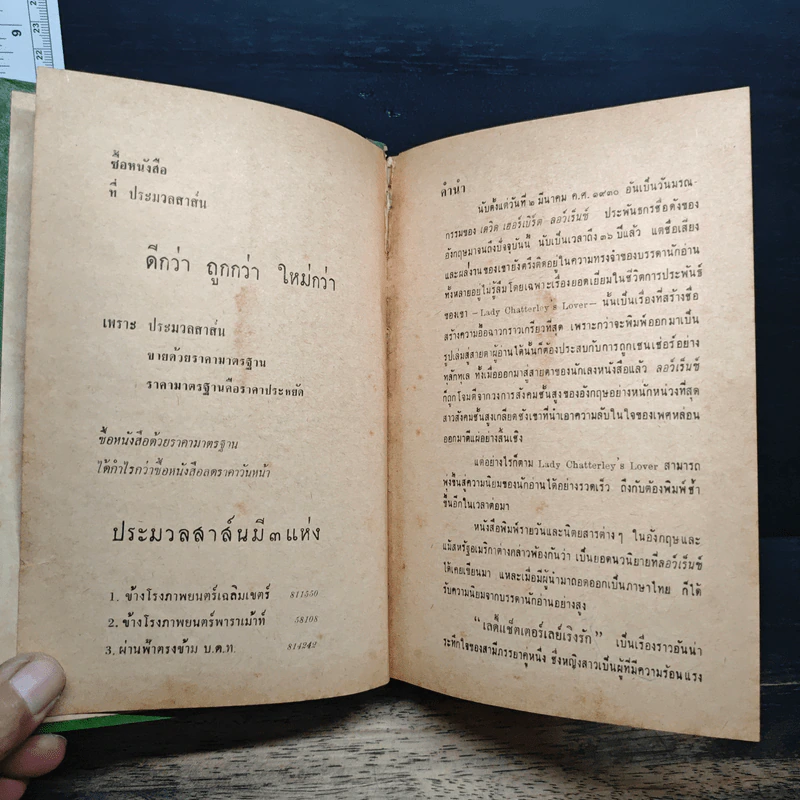 9
23
22
ซื้อหนังสือ
ที่ ประมวลสาส์น
ดีกว่า ถูกกว่า ใหม่กว่า
เพราะ ประมวลสาส์น
ขายด้วยราคามาตรฐาน
ราคามาตรฐานคือราคาประหยัด
ซื้อหนังสือด้วยราคามาตรฐาน
ได้กำไรกว่าซื้อหนังสือลดราคาวันหน้า
ประมวลสาส์นมี ๓ แห่ง
1. ข้างโรงภาพยนตร์เฉลิมเขตร์ 811550
2. ข้างโรงภาพยนตร์พาราเม้าท์ 58108
3. ผ่านฟ้าตรงข้าม บ.ด.ท. 814242
คำนำ
นับตั้งแต่วันที่ ๒ มีนาคม ค.ศ. ๑๙๓๐ อันเป็นวันมรณ-
กรรมของ เดวิด เฮอร์เบิร์ต ลอว์เร็นซ์ ประพันธกรชื่อดังของ
อังกฤษมาจนถึงปัจจุบันนี้ นับเป็นเวลาถึง ๓๖ ปีแล้ว แต่ชื่อเสียง
และผลงานของเขายังตรึงติดอยู่ในความทรงจำของบรรดานักอ่าน
ทั้งหลายอยู่ไม่รู้ลืม โดยเฉพาะเรื่องยอดเยี่ยมในชีวิตการประพันธ์
ของเขา —Lady Chatterley's Lover— นั้นเป็นเรื่องที่สร้างชื่อ
สร้างความอื้อฉาวกราวเกรียวที่สุด เพราะกว่าจะพิมพ์ออกมาเป็น
รูปเล่มสู่สายตาผู้อ่านได้นั้นก็ต้องประสบกับการถูกเซนเซ่อร์อย่าง
หลักทุเล ทั้งเมื่อออกมาสู่สายตาของนักเลงหนังสือแล้ว ลอว์เร็นซ์
ก็ถูกโจมตีจากวงการสังคมชั้นสูงของอังกฤษอย่างหนักหน่วงที่สุด
สาวสังคมชั้นสูงเกลียดชังเขาที่นำเอาความลับในใจของเพศหล่อน
ออกมาตีแผ่อย่างสิ้นเชิง
แต่อย่างไรก็ตาม Lady Chatterley's Lover สามารถ
พุ่งขึ้นสู่ความนิยมของนักอ่านได้อย่างรวดเร็ว ถึงกับต้องพิมพ์ซ้ำ
ขึ้นอีกในเวลาต่อมา
หนังสือพิมพ์รายวันและนิตยสารต่างๆ ในอังกฤษและ
แม้สหรัฐอเมริกาต่างกล่าวพ้องกันว่า เป็นยอดนวนิยายที่ลอว์เร็นซ์
ได้เคยเขียนมา แหละเมื่อมีผู้นำมาถอดออกเป็นภาษาไทย ก็ได้
รับความนิยมจากบรรดานักอ่านอย่างสูง
"เลดี้แช็ตเตอร์เลย์เริงรัก" เป็นเรื่องราวอันน่า
ระทึกใจของสามีภรรยาคู่หนึ่ง ซึ่งหญิงสาวเป็นผู้ที่มีความร้อนแรง